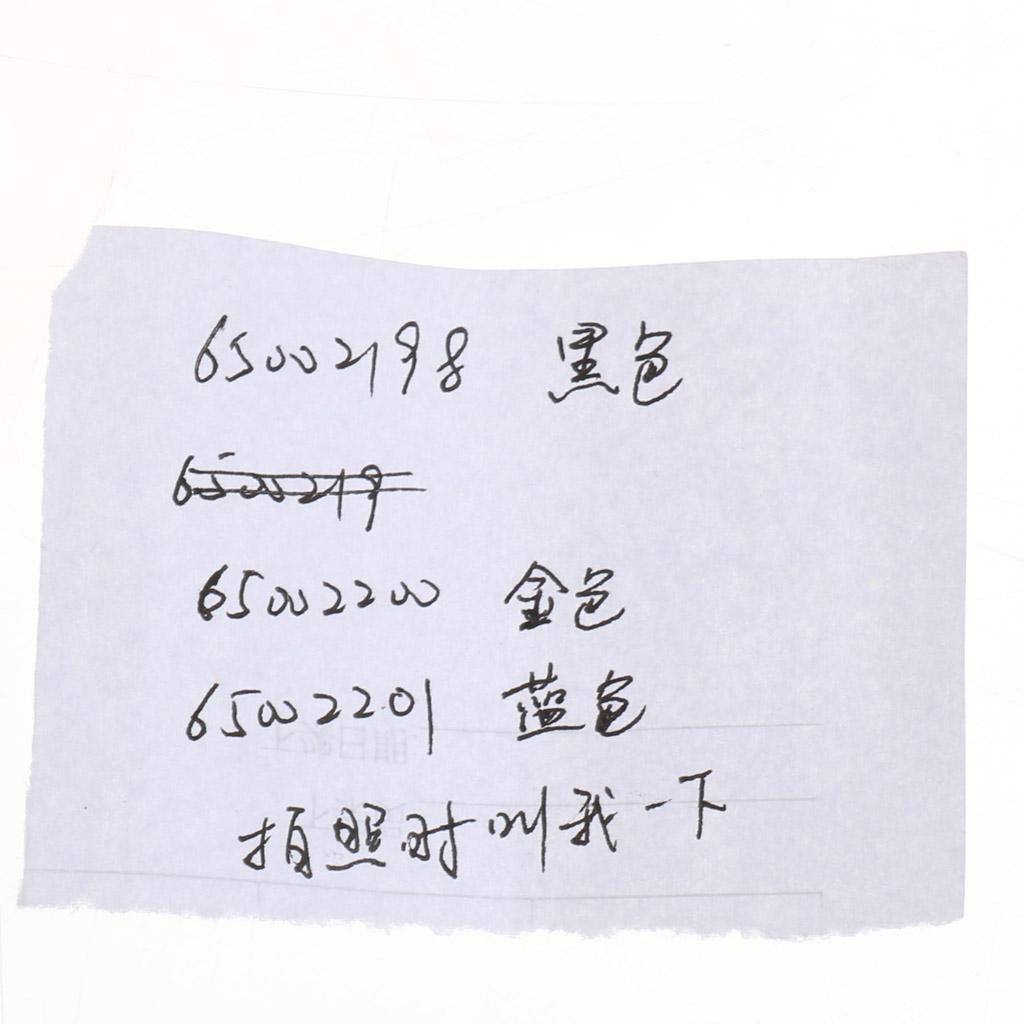 65002198 黑色
6500219
65002200 金色
65002201 蓝色
拍照时叫我一下